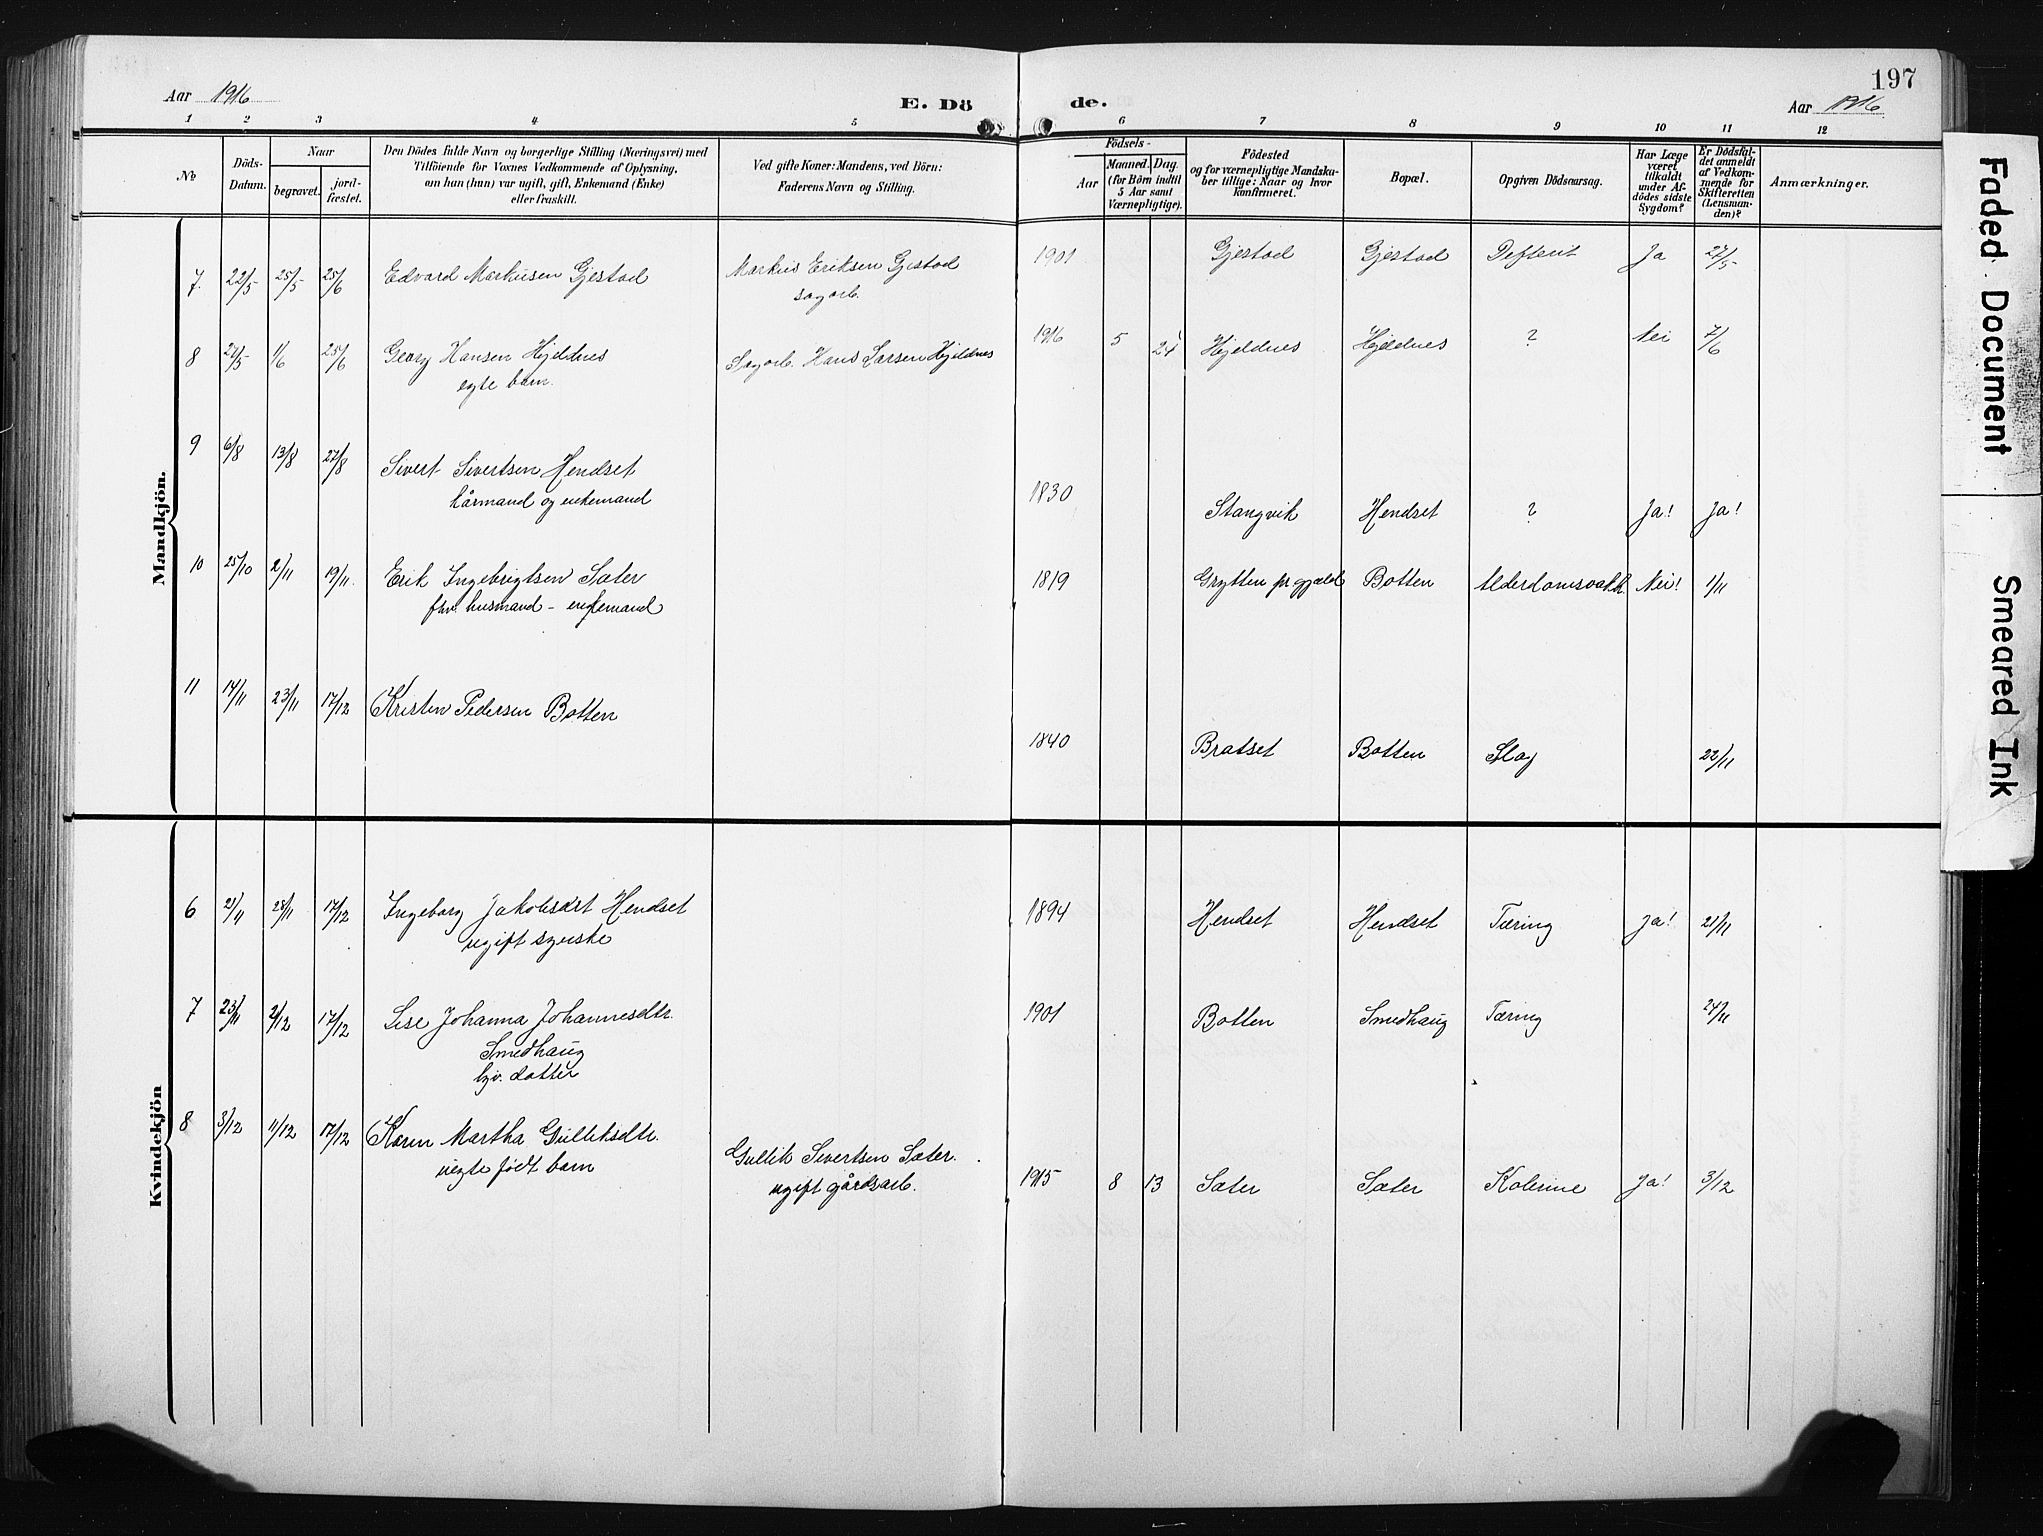 197
Aar 1916
E. Dö
de.
Aar 1916
1 2 3 4 5 6 7 8 9 10 11 12
No
Döds-
Datum.
Naar
begravet.
jord-
fæstet.
Den Dödes fulde Navn og borgerlige Stilling (Næringsvei) med
Tilföiende for Voxnes Vedkommende af Oplysning,
om han (hun) var ugift, gift, Enkemand (Enke)
eller fraskilt.
Ved gifte Koner: Mandens, ved Börn:
Faderens Navn og Stilling.
Födsels-
Aar
Maaned. Dag.
(for Börn indtil
5 Aar samt
Værnepligtige).
Födested
og for værnepligtige Mandska-
ber tillige: Naar og hvor
konfirmeret.
Bopæl.
Opgiven Dödsaarsag.
Har Læge
været
tilkaldt
under Af-
dödes sidste
Sygdom?
Er Dödsfal-
det anmeldt
af Vedkom-
mende for
Skifteretten
(Lensman-
den)?
Anmærkninger.
Mandkjön.
7. 22/5 25/5 25/6 Edvard Markusen Gjestad Markus Eriksen Gjestad 1901 Gjestad Gjestad Difterit Ja 27/5
sagarb.
8 27/5 1/6 25/6 Georg Hansen Hjeldnes Sagarb. Hans Larsen Hjeldnes 1916 5 24 Hjeldnes Hjeldnes ? Nei 7/6
egte barn.
9 6/8 13/8 27/8 Sivert Sivertsen Hendset
kårmand og enkemand 1830 Stangvik Hendset ? Ja! Ja!
10 25/10 2/11 19/11. Erik Ingebrigtsen Sæter 1819 Grytten pr.gjæld Botten Alderdomssvakh. Nei! 1/11
fhv. husmand - enkemand
11 14/11 23/11 17/12 Kristen Pedersen Botten
1840 Bratset Botten Slag 22/11
Kvindekjön
6 21/11 28/11 17/12 Ingeborg Jakobsdt Hendset 1894 Hendset Hendset Tæring Ja! 21/11
ugift syerske
7 23/11 2/12 17/12 Lise Johanna Johannesdtr. 1901 Botten Smedhaug Tæring 24/11
Smedhaug
datter
8 3/12 11/12 17/12 Karen Martha Gulliksdtr.
uegte født barn Gullik Sivertsen Sæter. 1915 8 13 Sæter Sæter Kolerine Ja! 3/12
ugift gårdsarb.
Faded Document
Smeared Ink